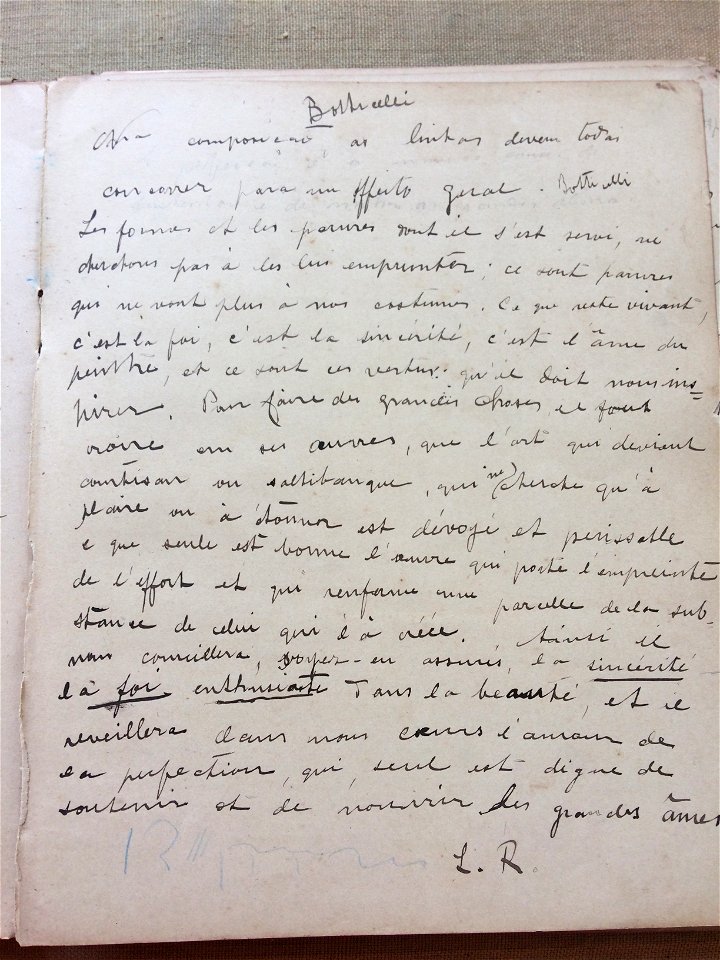 Botticelli
Na composicao as linhas devem todas
concorrer para um effeito geral. Botticelli
Les formes et les parures dont il s'est servi, ne
cherchons pas à les lui emprunter; ce sont parures
qui ne vont plus à nos costumes. Ce que reste vivant,
c'est la foi, c'est la sincérité, c'est l'âme du
peintre, et ce sont ces vertus qu'il doit nous ins=
pirer. Pour faire des grandes choses, il faut
croire en ses œuvres, que l'art qui devient
courtisan ou saltibanque, qui ne cherche qu'à
plaire ou à étonner est dévoyé et perissable
e que seule est bonne l'œuvre qui porte l'empreinte
de l'effort et qui renferme une parcelle de la sub-
stance de celui qui l'à créée. Ainsi il
nous conseillera, soyez-en assurés, la sincérité
là foi enthusiaste dans la beauté, et il
reveillera dans nous cœurs l'amour de
la perfection, qui, seul est digne de
soutenir et de nourrir les grandes âmes
L. R.